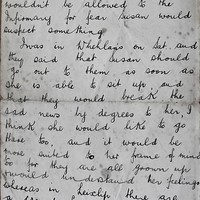 wouldn't be allowed to the
Infirmary for fear Susan would
suspect something
I was in Whehlan's on Sat. and
they said that Susan should
go out to them as soon as
she is able to sit up, and
that they would break the
sad news by degrees to her, I
think she would like to go
there too, and it would be
more suited to her frame of mind
for they are all grown up
would understand her feelings
whereas in Leixlip there are